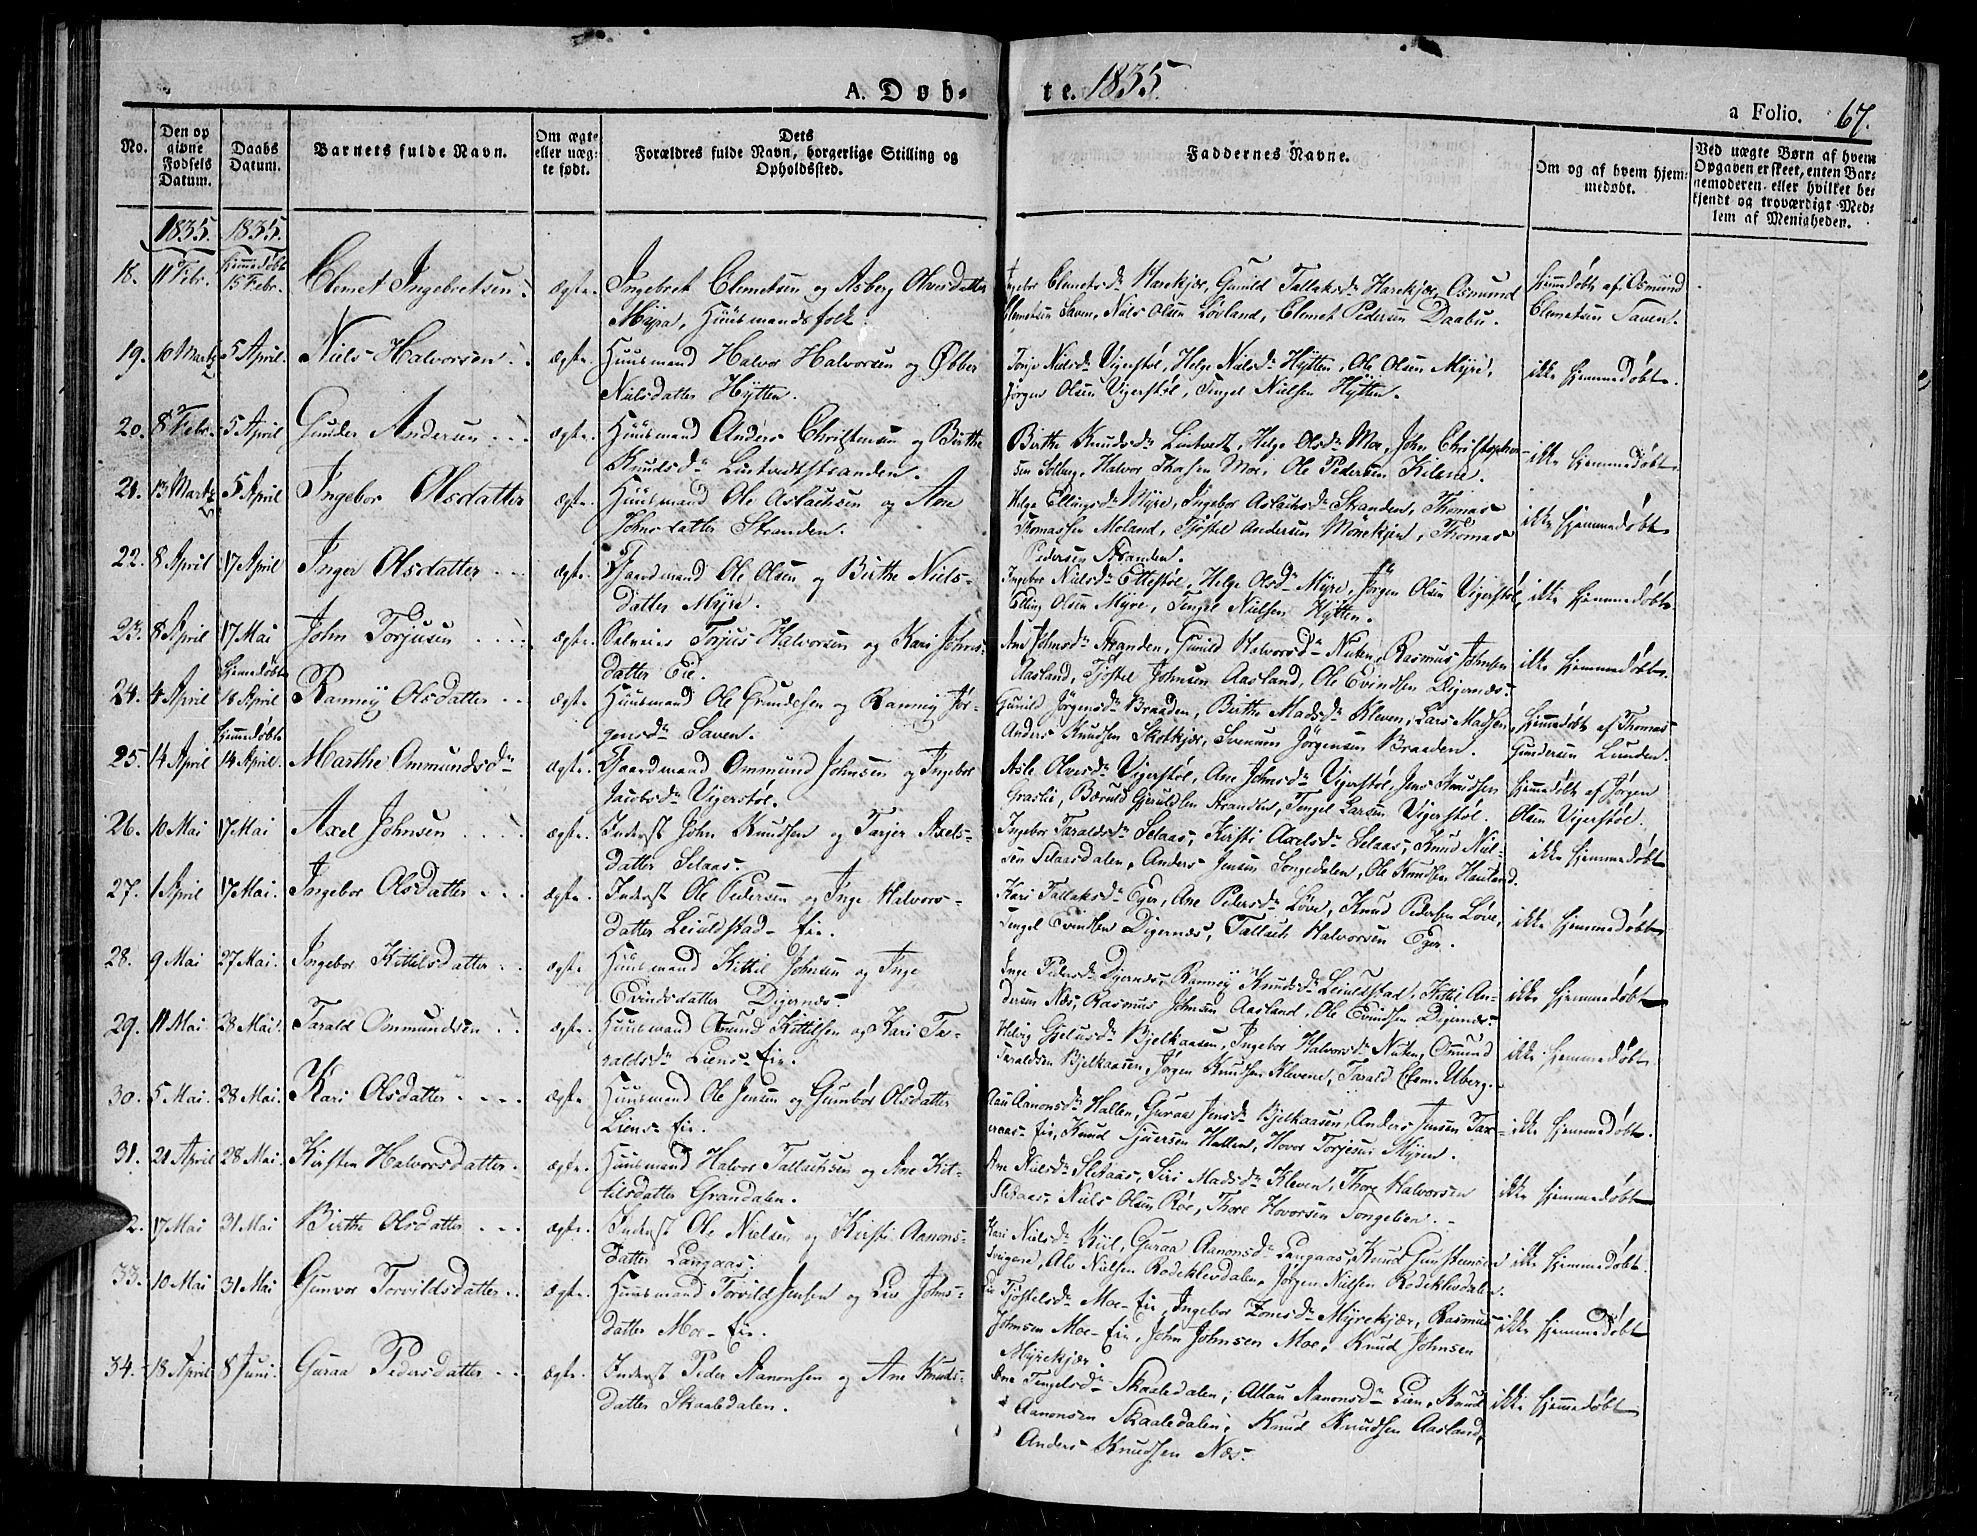 A. Døb-
te. 1835.
a Folio. 67.
No.
Den op
givne
Fødsels
Datum.
Daabs
Datum.
Barnets fulde Navn.
Om ægte
eller uæg-
te født.
Dets
Forældres fulde Navn, borgerlige Stilling og
Opholdssted.
Faddernes Navne.
Om og af hvem hjem-
medøbt.
Ved uægte Børn af hvem
Opgaven er skeet, enten Bar-
nemoderen eller hvilket be-
kjendt og troværdigt Med-
lem af Menigheden.
1835. 1835.
18. 11 Febr. hjemmedøbt 15 Febr. Clemet Ingebretsen. ægte. Ingebret Clemetsen og Asberg Olvesdatter
Mispa, Huusmandsfolk.
Ingebor Clemetsd. Harekjær, Gunild Tallaksd. Harekjær, Osmund
Clemetsen Saven, Niels Olsen Løvland, Clemet Pedersen Daabu.
hjemmedøbt af Osmund
Clemetsen Saven.
19. 16 Martz 5 April. Niels Halvorsen ægte. Huusmand Halvor Halvorsen og Ebber
Nielsdatter Hytten.
Torje Nielsd. Vigerstøl, Helge Nielsd. Hytten, Ole Olsen Myre,
Jørgen Olsen Vigerstøl, Tengel Nielsen Hytten.
ikke hjemmedøbt.
20. 8 Febr. 5 April Gunder Andersen ægte. Huusmand Anders Christensen og Birthe
Knudsd. Lintvedtstranden.
Birthe Knudsd. Lintvedt, Helge Olsd. Moe, John Christophor-
sen Solberg, Halvor Moe, Ole Pedersen Kilene.
ikke hjemmedøbt.
21. 13 Martz 5 April Ingebor Olsdatter ægte. Huusmand Ole Aslachsen og Ane
Johnsdatter Stranden.
Helge Ellingsd. Myre, Ingebor Aslachsd. Stranden, Thomas
Thomassen Moland, Tjøstel Andersen Mønekjen, Thomas
Pedersen Stranden.
ikke hjemmedøbt
22. 8 April 17 April Inger Olsdatter ægte. Gaardmand Ole Olsen og Birthe Niels-
datter Myre.
Ingebor Nielsd. Ettestøl, Helge Olsd. Myre, Jørgen Olsen Vigerstøl,
Elling Olsen Myre, Tengel Nielsen Hytten.
ikke hjemmedøbt.
23. 8 April 17 Mai John Torjusen ægte. Selveier Torjus Halvorsen og Kari Johns-
datter Eie.
Ane Johnsd. Stranden, Gunild Halvorsd. Nuten, Rasmus Johnsen
Aasland, Tjøstel Johnsen Aasland, Ole Evindsen Digernæs.
ikke hjemmedøbt.
24. 4 April hjemmedøbt 16 April Ranney Olsdatter ægte. Huusmand Ole Grundesen og Ranney Jør-
gensd. Saven.
Gunild Jørgensd. Braaden, Birthe Madsd. Kleven, Lars Madsen,
Anders Knudsen Skotkjær, Svenum Jørgensen Braaden.
hjemmedøbt af Thomas
Gundersen Lunden.
25. 14 April hjemmedøbt 14 April. Marthe Ommundsd. ægte. Gaardmand Ommund Johnsen og Ingebor
Jacobsd. Vigerstøl.
Asle Olvesd. Vigerstøl, Ane Johnsd. Vigerstøl, Jens Knudsen
Graslie, Bæruld Gjeruldsen Strandlie, Tengel Larsen Vigerstøl.
hjemmedøbt af Jørgen
Olsen Vigerstøl.
26. 10 Mai 17 Mai Axel Johnsen ægte. Inderst John Knudsen og Tarjer Axels-
datter Selaas.
Ingebor Taraldsd. Selaas, Kirsti Axelsd. Selaas, Knud Niel-
sen Selaasdalen, Anders Jensen Songedalen, Ole Knudsen Hauland.
ikke hjemmedøbt
27. 1 April 17 Mai. Ingebor Olsdatter ægte. Inderst Ole Pedersen og Inge Halvors-
datter Leiuldstad-Eie.
Kari Tallaksd. Eger, Ane Pedersd. Løve, Knud Pedersen Løve,
Tengel Evindsen Digernæs, Tallach Halvorsen Eger.
ikke hjemmedøbt
28. 9 Mai 27 Mai. Ingebor Kittilsdatter ægte. Huusmand Kittil Johnsen og Inge
Evindsdatter Digernæs.
Inge Pedersd. Digernæs, Ranney Knudsd. Leiuldstad, Kittil An-
dersen Næs, Rasmus Johnsen Aasland, Ole Evindsen Digernæs.
ikke hjemmedøbt
29. 11 Mai 28 Mai. Tarald Ommundsen ægte. Huusmand Omund Kittilsen og Kari Ta-
raldsd. Liens-Eie.
Helvig Gjelusd. Bjelkaasen, Ingebor Halvorsd. Nuten, Omund
Taraldsen Bjelkaasen, Jørgen Knudsen Klevene, Tarald Clem. Uberg.
ikke hjemmedøbt
30. 5 Mai. 28 Mai. Kari Olsdatter ægte. Huusmand Ole Jensen og Gumbor Olsdatter
Liens-Eie.
Aanonsd. Hallen, Guraa Jensd. Bjelkaasen, Anders Jensen Tax-
eraas-Eie, Knud Sjuersen Hallen, Hovor Torjesen Myren.
ikke hjemmedøbt.
31. 21 April 28 Mai. Kirsten Halvorsdatter. ægte. Huusmand Halvor Tallachsen og Ane Kit-
tilsdatter Grandalen.
Ane Nielsd. Selaas, Siri Madsd. Kleven, Thore Halvorsen
Selaas, Niels Olsen Røe, Thore Hovorsen Songelien.
ikke hjemmedøbt
2. 17 Mai 31 Mai Birthe Olsdatter ægte. Inderst Ole Nielsen og Kirsti Aanons-
datter Langaas.
Kari Nielsd. Kiil, Guraa Aanonsd. Langaas, Knud Gunstensen
Sveigene, Alv Nielsen Rødeklevdalen, Jørgen Nielsen Rødeklevdalen.
ikke hjemmedøbt.
33. 10 Mai 31 Mai Gunvor Torvildsdatter ægte. Huusmand Torvild Jensen og Liv Johns-
datter Moe-Eie.
Liv Tjøstelsd. Moe-Eie, Ingebor Zonesd. Myrekjær, Rasmus
Johnsen Moe-Eie, John Johnsen Moe, Knud Johnsen
Myrekjær.
ikke hjemmedøbt
34. 18 April 8 Juni. Guraa Pedersdatter ægte. Inderst Peder Aanonsen og Ane Knuds-
datter Skaaledalen.
Ane Tengelsd. Skaaledalen, Allau Aanonsd. Lien, Knud
Aanonsen Skaaledalen, Knud Knudsen Aasland,
Anders Knudsen Næs.
ikke hjemmedøbt